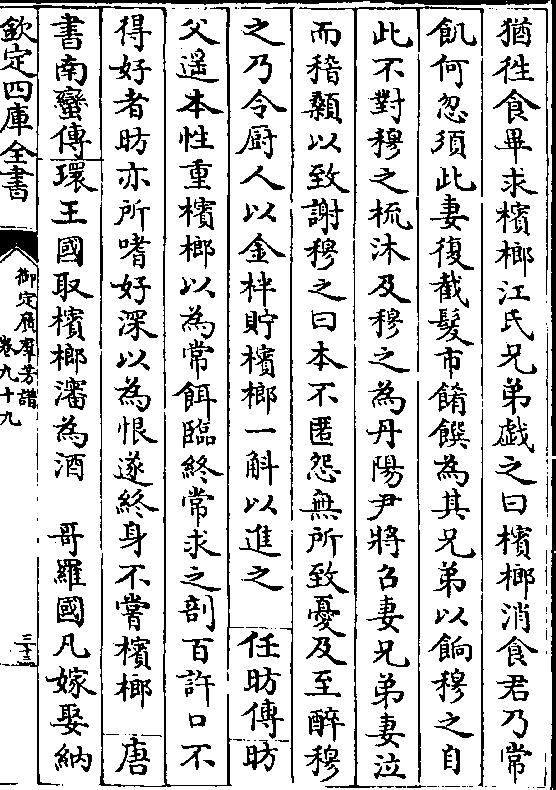 猶徃食畢求檳榔江氏兄弟戯之曰檳榔消食君乃常
飢何忽須此妻復截髮市餚饌為其兄弟以餉穆之自
此不對穆之梳沐及穆之為丹陽尹將召妻兄弟妻泣
而稽顙以致謝穆之曰本不匿怨無所致憂及至醉穆
之乃令厨人以金柈貯檳榔一斛以進之 任昉傳昉
父遥本性重檳榔以為常餌臨終常求之剖百許口不
得好者昉亦所嗜好深以為恨遂終身不嘗檳榔 唐
書南蠻傳環王國取檳榔瀋為酒 哥羅國凡嫁娶納
欽定四庫全書
御定廣羣芳譜
卷九十九
三十二